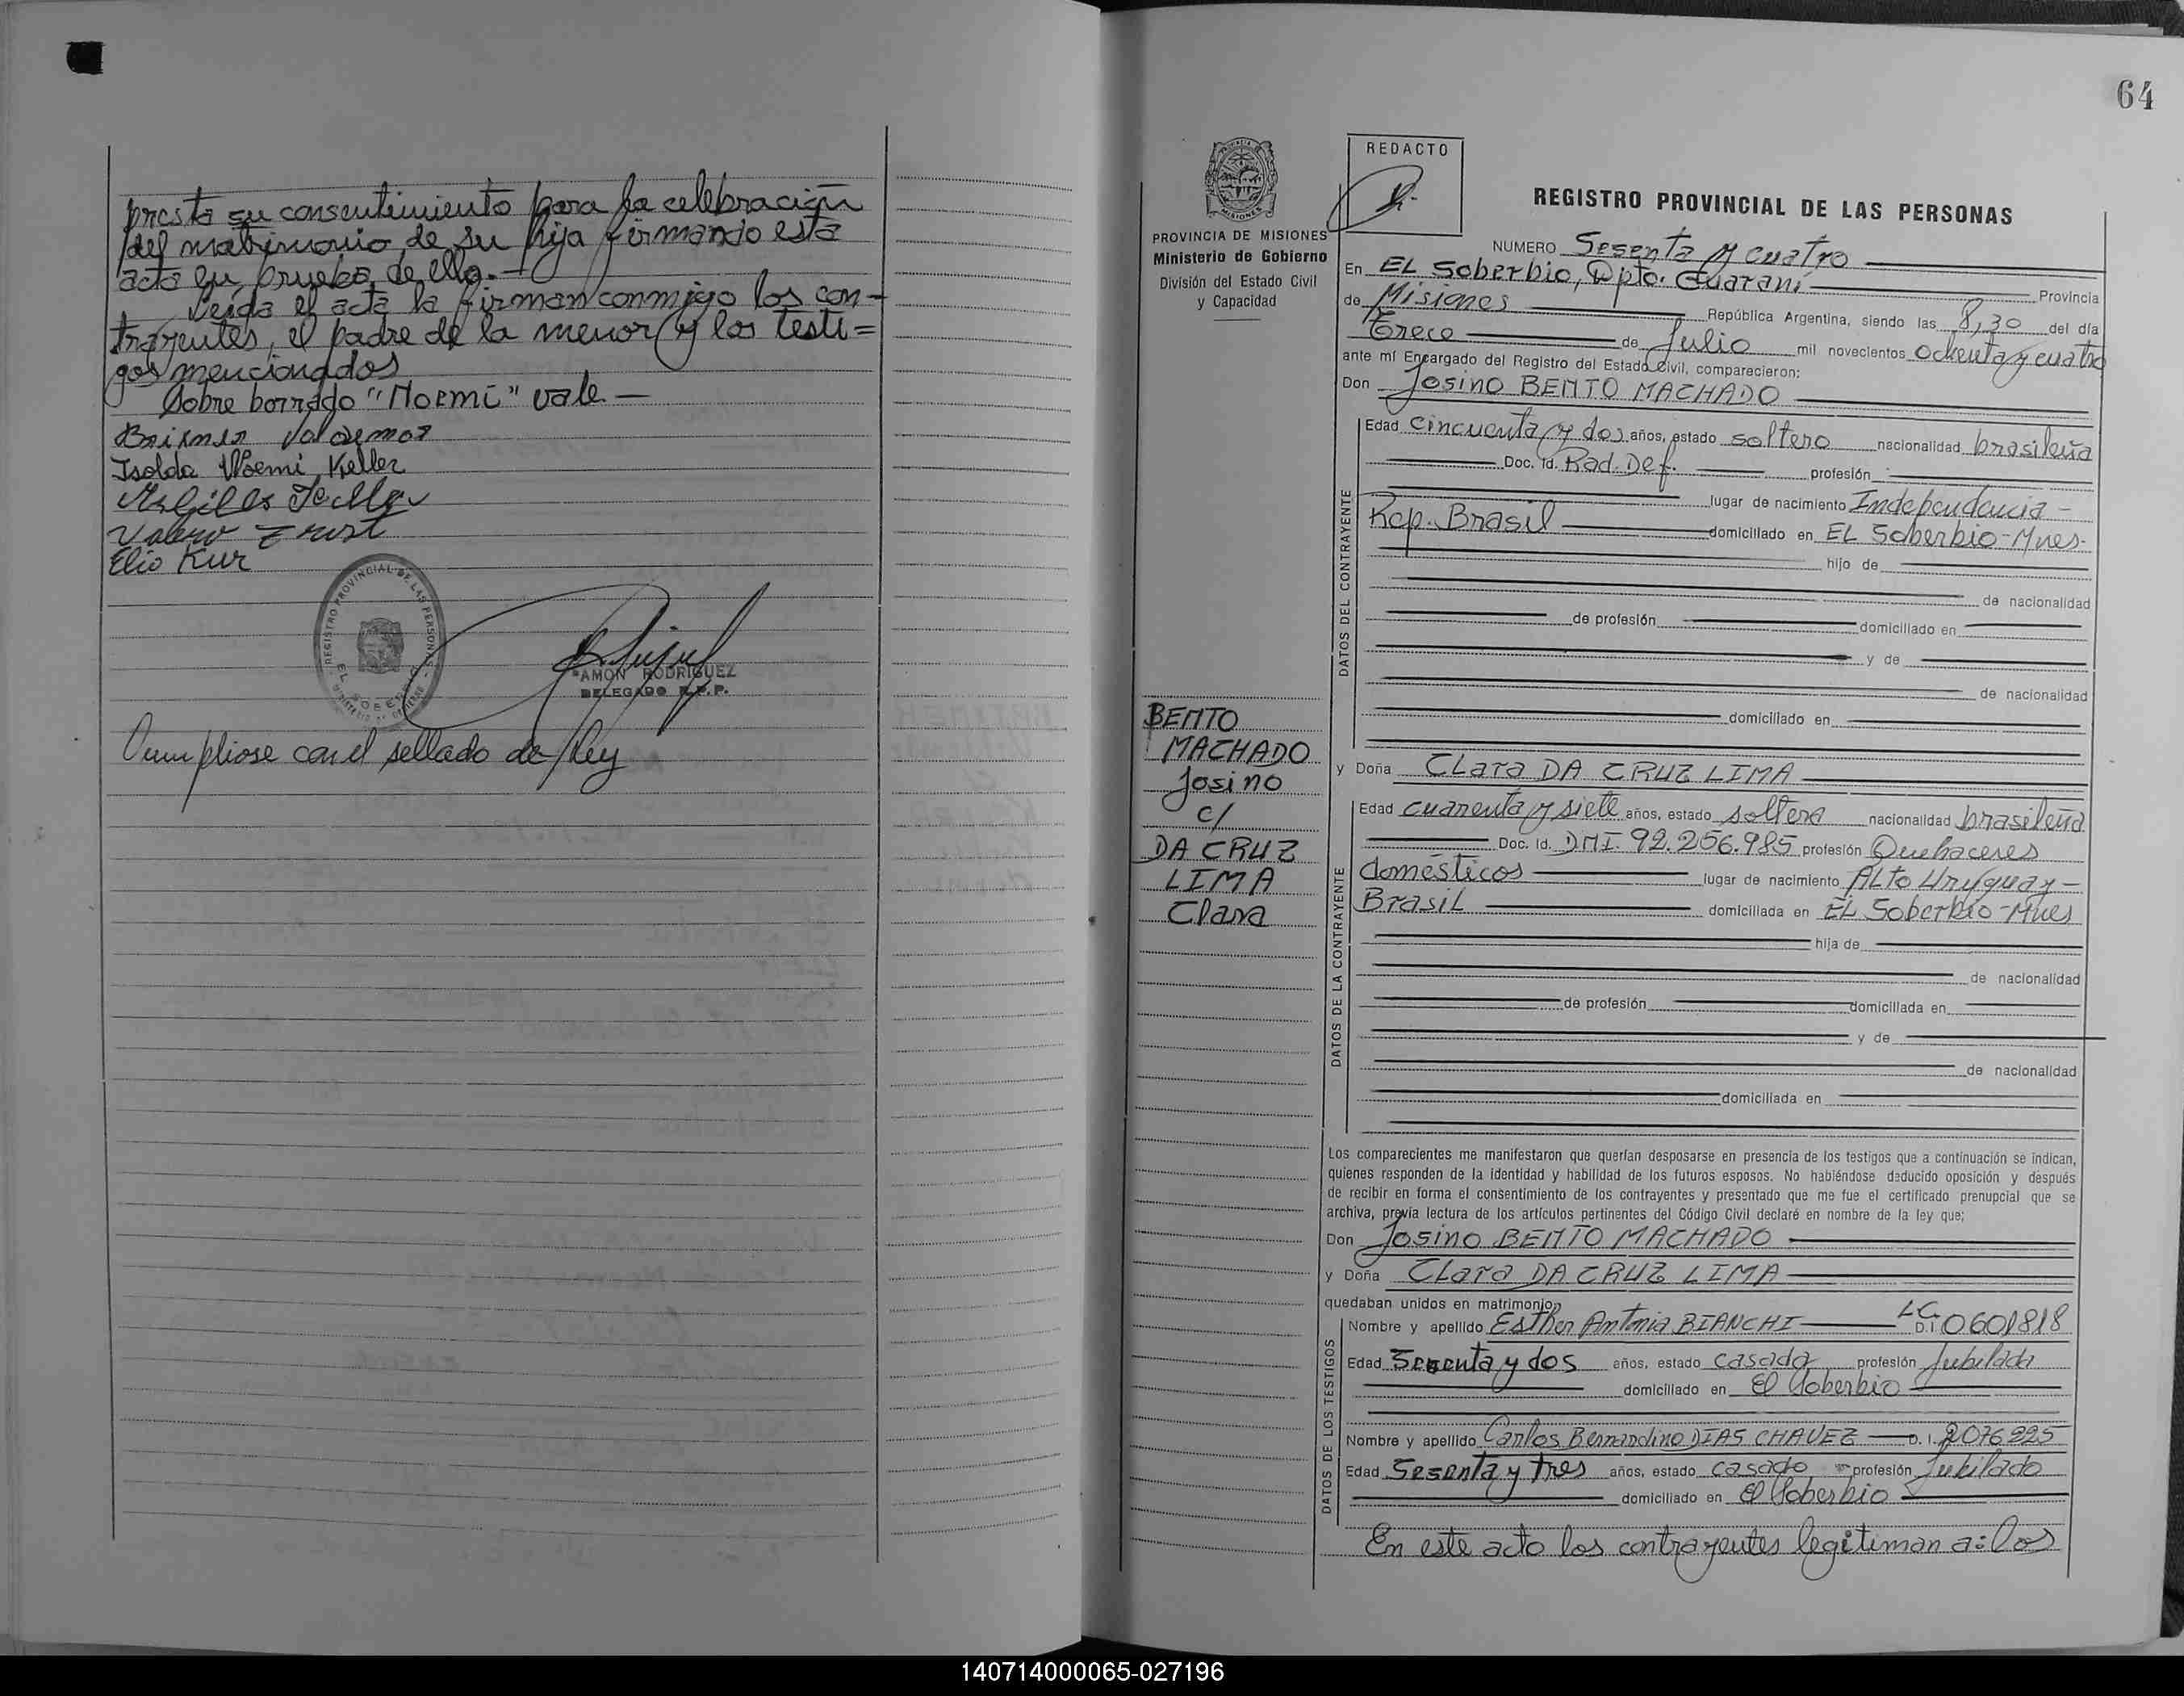 presta su consentimiento para la celebración
del matrimonio de su hija firmando esta
acta en prueba de ello.-
Leída el acta la firman conmigo los con-
trayentes, el padre de la menor y los testi=
gos mencionados
Sobre borrado "Noemi" vale —
Valdemar
Isolda Noemi Keller
Elio Kur
REGISTRO PROVINCIAL DE LAS PERSONAS
RAMON RODRIGUEZ
DELEGADO R.P.P.
Cumpliose con el sellado de ley
64
PROVINCIA DE MISIONES
Ministerio de Gobierno
División del Estado Civil
y Capacidad
REDACTO
REGISTRO PROVINCIAL DE LAS PERSONAS
NUMERO Sesenta y cuatro
En EL Soberbio, Dpto. Guaraní Provincia
de Misiones República Argentina, siendo las 8,30 del día
Trece de Julio mil novecientos ochenta y cuatro
ante mí Encargado del Registro del Estado Civil, comparecieron:
Don Josino BENTO MACHADO
DATOS DEL CONTRAYENTE
Edad cincuenta y dos años, estado soltero nacionalidad brasileña
Doc. Id. Rad. Def. profesión
lugar de nacimiento Independencia -
Rep. Brasil domiciliado en EL Soberbio-Mnes-
hijo de
de nacionalidad
de profesión domiciliado en
y de
de nacionalidad
domiciliado en
BENTO
MACHADO
Josino
c/
DA CRUZ
LIMA
Clara
y Doña Clara DA CRUZ LIMA
DATOS DE LA CONTRAYENTE
Edad cuarenta y siete años, estado soltera nacionalidad brasileña
Doc. Id. DNI. 92.256.985 profesión Quehaceres
domésticos lugar de nacimiento ALTo Uruguay -
BrasiL domiciliada en EL Soberbio-Mnes
hija de
de nacionalidad
de profesión domiciliada en
y de
de nacionalidad
domiciliada en
Los comparecientes me manifestaron que querían desposarse en presencia de los testigos que a continuación se indican,
quienes responden de la identidad y habilidad de los futuros esposos. No habiéndose deducido oposición y después
de recibir en forma el consentimiento de los contrayentes y presentado que me fue el certificado prenupcial que se
archiva, previa lectura de los artículos pertinentes del Código Civil declaré en nombre de la ley que;
Don Josino BENTO MACHADO
y Doña Clara DA CRUZ LIMA
quedaban unidos en matrimonio,
DATOS DE LOS TESTIGOS
Nombre y apellido Esther Antonia BIANCHI LC D.I. 0601818
Edad Sesenta y dos años, estado casada profesión Jubilada
domiciliado en El Soberbio
Nombre y apellido Carlos Bernardino DIAS CHAVEZ D.I. 2076225
Edad Sesenta y tres años, estado casado profesión Jubilado
domiciliado en El Soberbio
En este acto los contrayentes legitiman a: los
140714000065-027196